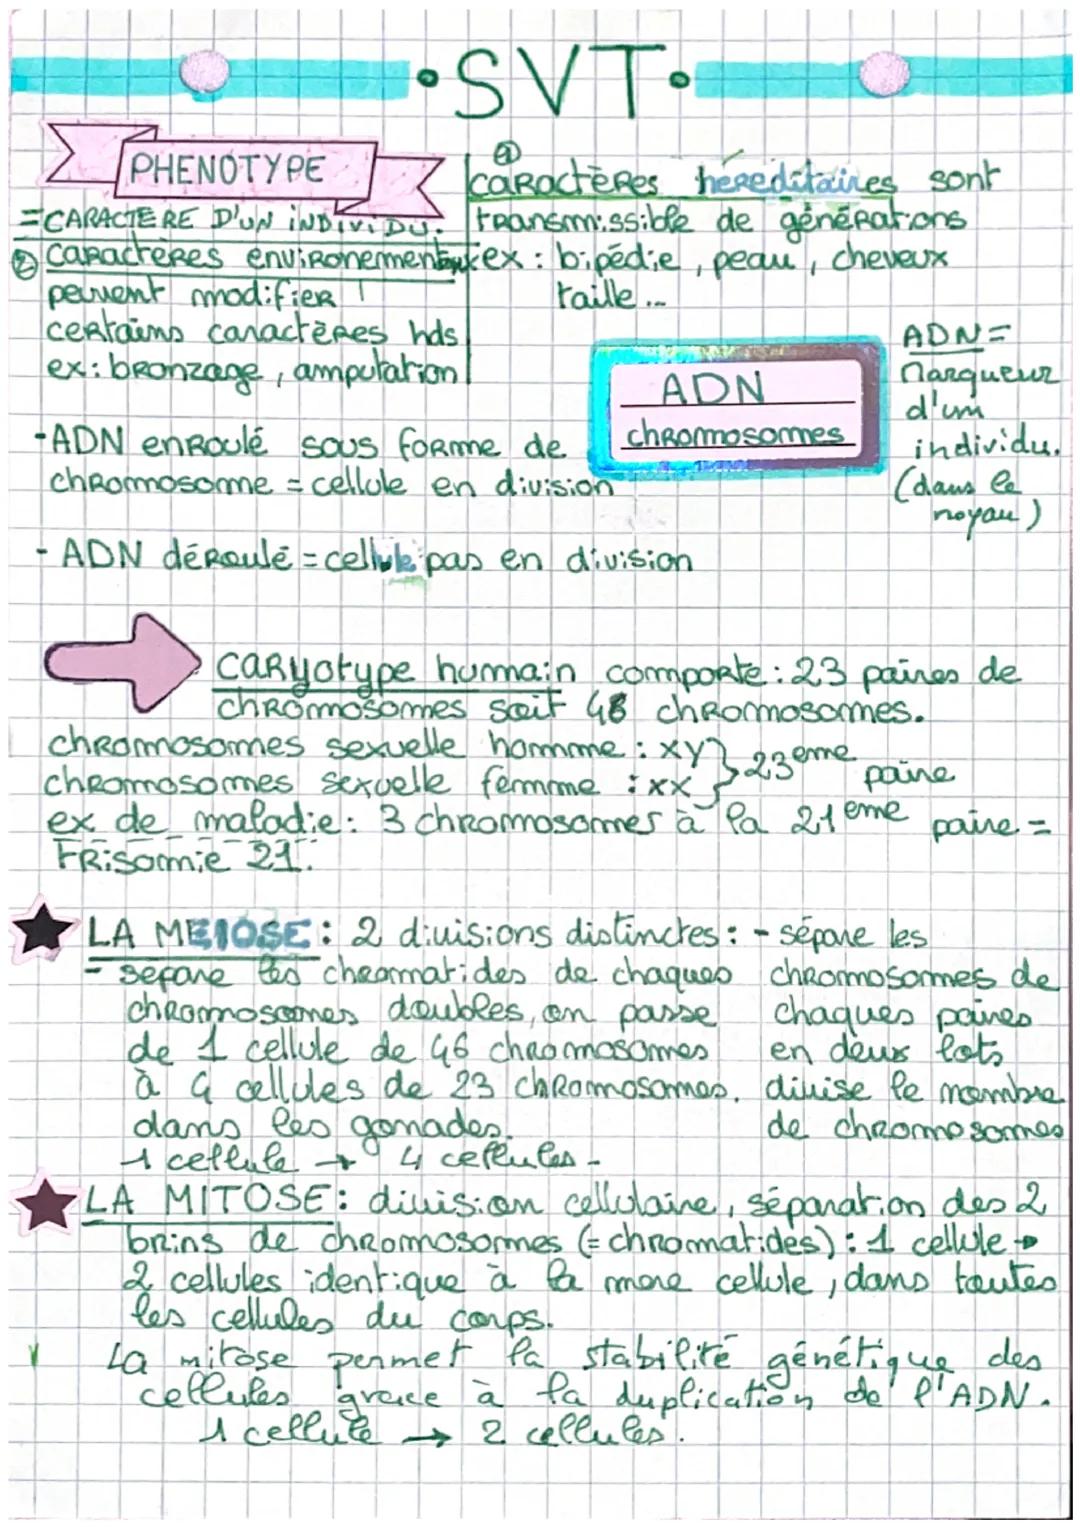 • SVT •
PHENOTYPE
= CARACTERE D'UN INDIVIDU.
① caractères héreditaires sont
transmissible de générations
ex : bipédie, peau, cheveux
taille ...
② caractères environementaux
peuvent modifier
certains caractères hds
ex : bronzage, amputation
ADN
chromosomes
ADN =
Marqueur
d'un
individu.
(dans le
noyau)
- ADN enroulé sous forme de
chromosome = cellule en division
- ADN déroulé = cellule pas en division
caryotype humain comporte : 23 paires de
chromosomes soit 46 chromosomes.
chromosomes sexuelle homme : XY } 23eme paire
chromosomes sexuelle femme : XX
ex de maladie : 3 chromosomes à la 21eme paire =
Trisomie 21.
LA MEIOSE : 2 divisions distinctes : - sépare les
chromosomes de
chaques paires
en deux lots
divise le nombre
de chromosomes
- separe les chromatides de chaques
chromosomes doubles, on passe
de 1 cellule de 46 chromosomes
à 4 cellules de 23 chromosomes.
dans les gonades.
1 cellule → 4 cellules -
LA MITOSE : division cellulaire, séparation des 2
brins de chromosomes (= chromatides) : 1 cellule →
2 cellules identique à la mere cellule, dans toutes
les cellules du corps.
La mitose permet la stabilité génétique des
cellules grace à la duplication de l'ADN.
1 cellule → 2 cellules.